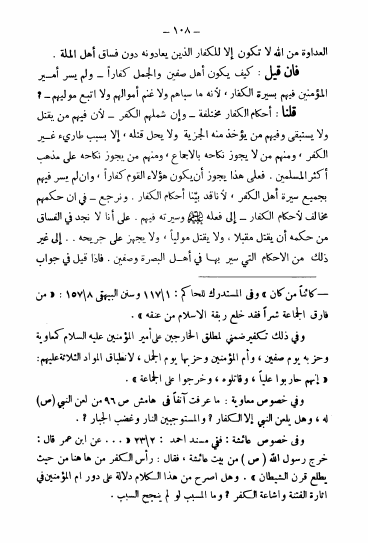 — ١٠٨ —
العداوة من الله لا تكون إلا للكفار الذين يعادونه دون فساق أهل الملة .
فان قيل : كيف يكون أهل صفين والجمل كفاراً — ولم يسر أمير
المؤمنين فيهم بسيرة الكفار ، لأنه ما سباهم ولا غنم أموالهم ولا اتبع موليهم — ?
قلنا : أحكام الكفار مختلفة — وإن شملهم الكفر — لأن فيهم من يقتل
ولا يستبقى وفيهم من يؤخذ منه الجزية ولا يحل قتله ، إلا بسبب طارىء غير
الكفر ، ومنهم من لا يجوز نكاحه بالاجماع ، ومنهم من يجوز نكاحه على مذهب
أكثر المسلمين . فعلى هذا يجوز أن يكون هؤلاء القوم كفاراً ، وان لم يسر فيهم
بجميع سيرة أهل الكفر ، لأنا قد بيّنا أحكام الكفار . ونرجع — في ان حكمهم
مخالف لأحكام الكفار — إلى فعله وسيرته فيهم . على أنا لا نجد في الفساق
من حكمه أن يقتل مقبلا ، ولا يقتل مولياً ، ولا يجهز على جريحه . . إلى غير
ذلك من الاحكام التي سير بها في أهل البصرة وصفين . فاذا قيل في جواب
— كائناً من كان » وفى المستدرك للحاكم : ١/١١٧ وسنن البيهقى ٨/١٥٧ : « من
فارق الجماعة شبراً فقد خلع ربقة الاسلام من عنقه » .
وفي ذلك تكفير ضمني لمطلق الخارجين على أمير المؤمنين عليه السلام كمعاوية
وحزبه يوم صفين ، وأم المؤمنين وحزبها يوم الجمل ، لانطباق المواد الثلاثة عليهم :
« إنهم حاربوا علياً ، وقاتلوه ، وخرجوا على الجماعة » .
وفى خصوص معاوية : ما عرفت آنفاً فى هامش ص ٩٦ من لعن النبي (ص)
له ، وهل يلعن النبي إلا الكفار ? والمستوجبين النار وغضب الجبار ? .
وفى خصوص عائشة : ففي مسند احمد : ٢/٢٣ « . . . عن ابن عمر قال :
خرج رسول الله ( ص ) من بيت عائشة ، فقال : رأس الكفر من ها هنا من حيث
يطلع قرن الشيطان » . وهل اصرح من هذا الكلام دلالة على دور ام المؤمنين في
اثارة الفتنة واشاعة الكفر ? وما المسبب لو لم ينجح السبب .